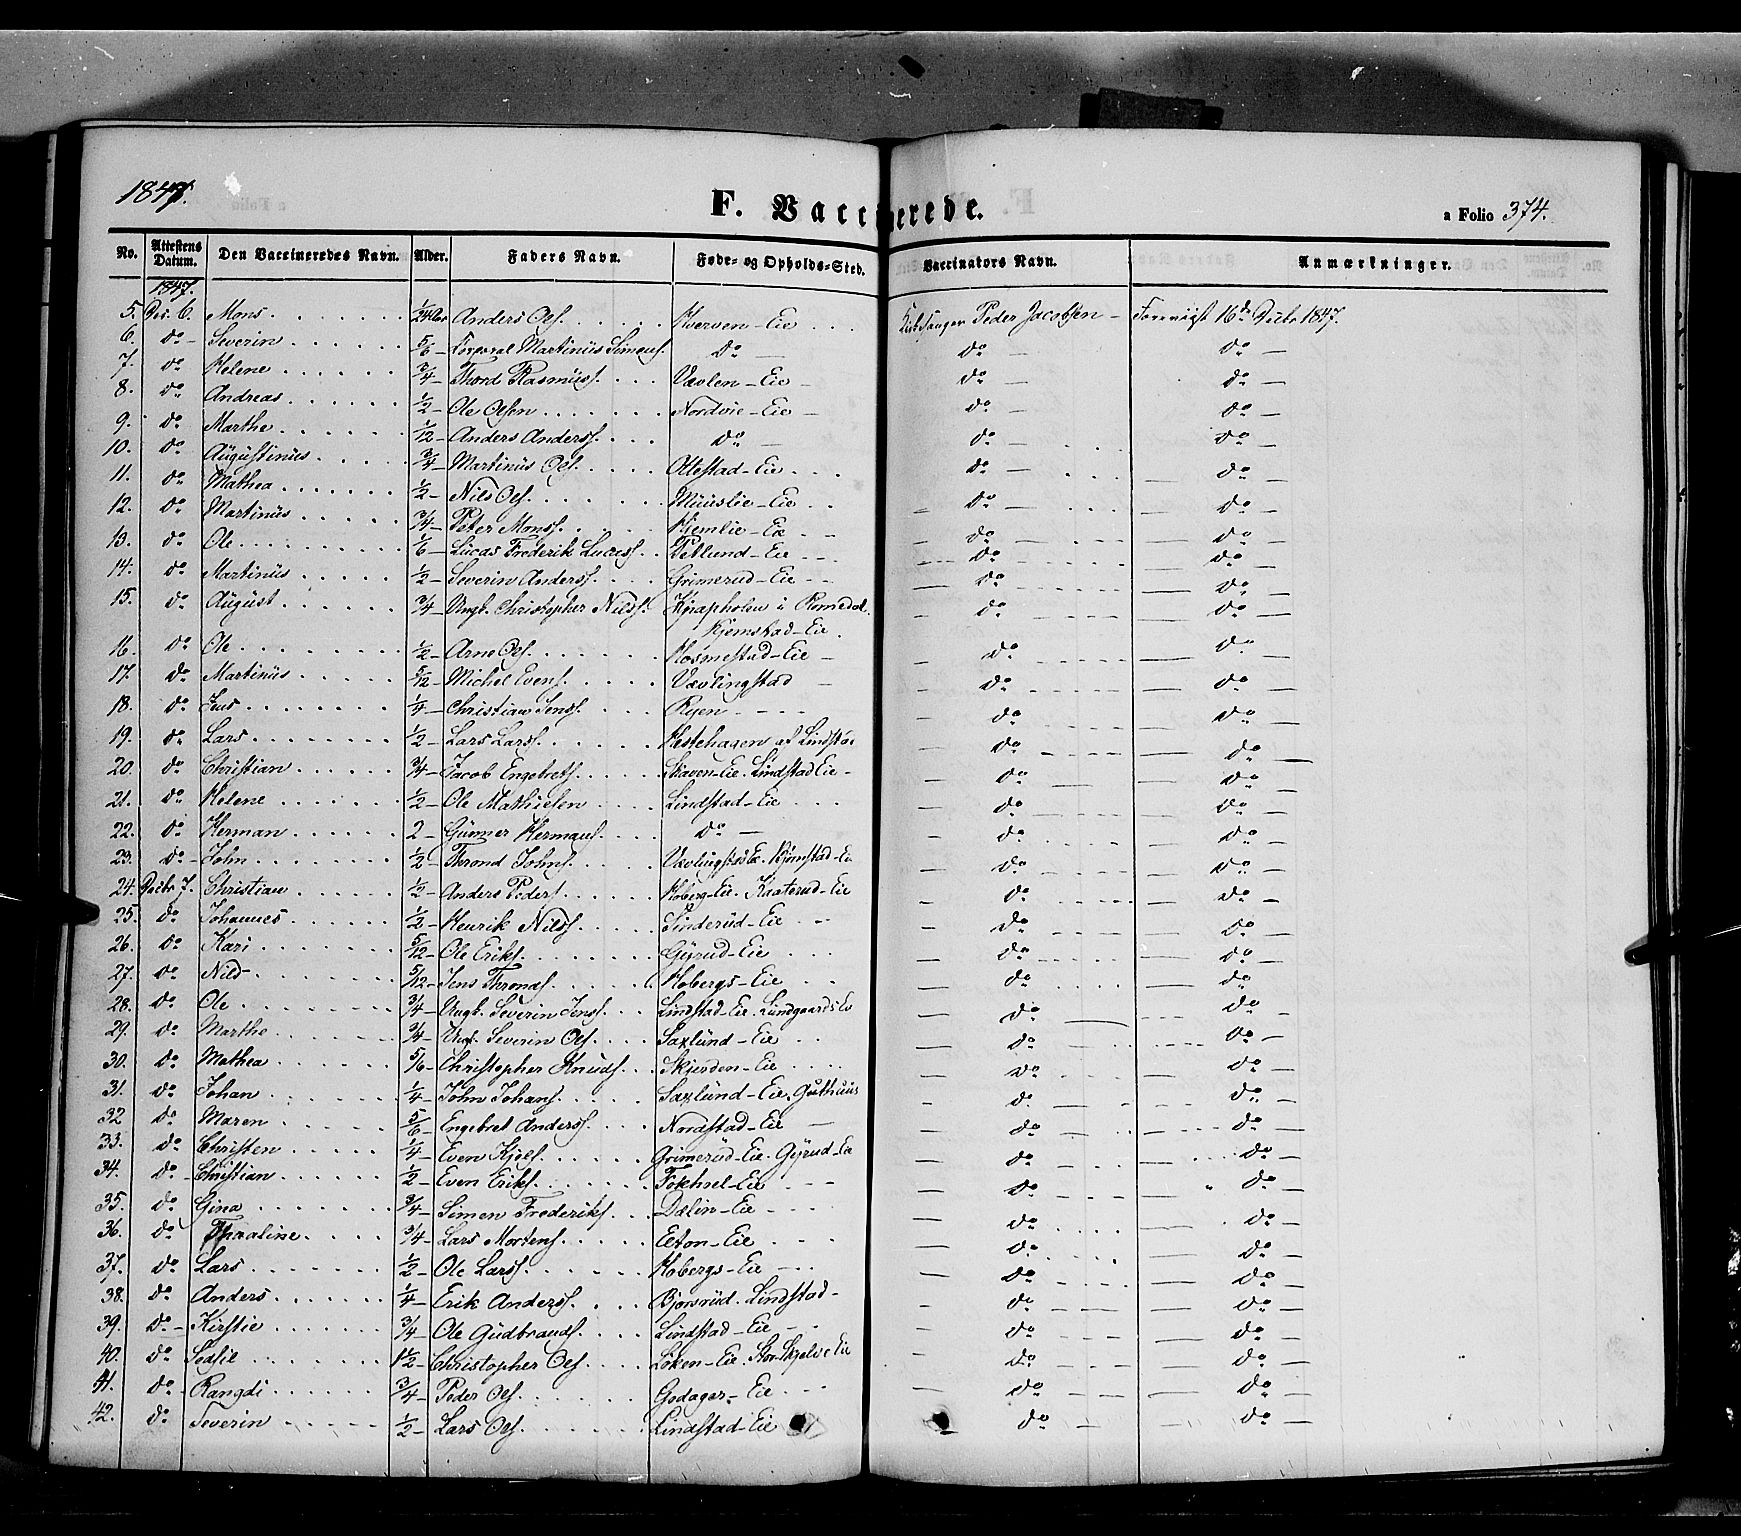 1847.
F. Vaccinerede.
a Folio 374.
No. Attestens Datum. Den Vaccineredes Navn. Alder. Faders Navn. Føde- og Opholds-Sted. Vaccinators Navn. Anmærkninger.
1847.
5. Des. 6. Mons Anders Oes. Kverven-Eie Kirkesanger Peder Jacobsen – Foreviist 16de Decbr 1847.
6. do – Severin 5/6 – Corporal Martinüs Simens. do – do – do –
7. do Helene 3/4 – Thord Rasmüss. Vævlen-Eie – do – do –
8. do Andreas 1/2 – Ole Olsen Nordvie-Eie – do – do –
9. do Marthe 1/12 – Anders Anderss. do – do – do –
10. do Augüstinüs 3/4 – Martinüs Oes. Olestad-Eie do – do –
11. do Mathea 1/2 – Nils Oes. Müüslie-Eie – do – do –
12. do Martinüs 3/4 – Peter Monss. Kjemlie-Eie – do – do –
13. do Ole 1/6 – Lücas Frederik Lucass. Vetlund-Eie – do – do –
14. do Martinüs 1/2 – Severin Anderss. Grimerud-Eie – do – do –
15. do August 3/4 – Ungk. Christopher Nilss. Kjrapholen i Romedal – do – do –
Kjemstad-Eie.
16. do Ole 1/2 – Arne Oes. Kosmestad-Eie – do – do –
17. do Martinüs 5/12 – Michel Evens. Vævlingstad – do – do –
18. do Jens 1/4 – Christian Jenss. Ryen – do – do –
19. do Lars 1/2 – Lars Larss. Hestehagen af Lindstad – do – do –
20. do Christian 3/4 – Jacob Engebrets. Skaven-Eie. Lindstad Eie – do – do –
21. do Helene 1/2 – Ole Mathiesen Lindstad-Eie – do – do –
22. do Herman 2 – Günner Hermans. do – – do – do –
23. do – John 1/2 – Thrond Johns. Kjemstad-Eie – do – do –
24. Decbr 7. Christian 1/2 – Anders Peders. Hoberg-Eie. Kaaterud-Eie – do – do –
25. do Johannes 1/2 – Henrik Nilss. Sinderüd-Eie – do – do –
26. do Kari 5/12 – Ole Eriks. Gyrud-Eie – do – do –
27. do Nils – 5/12 – Jens Thronds. Hobergs-Eie – do – do –
28. do Ole 3/4 – Ungk. Severin Jenss. Lindstad-Eie. Lundgaards Eie – do – do –
29. do Marthe 3/4 – Ungk. Severin Oes. Saxlünd-Eie – do – do –
30. do Mathea 5/6 – Christopher Knüds. Skjerden-Eie – do – do –
31. do Johan 1/4 – John Johans. Saxlund-Eie. Guthuus – do – do –
32 do Maren 5/6 – Engebret Anderss. Nordstad-Eie – do – do –
33. do Christen 1/4 – Even Kjels. Grimerüd-Eie. Gyrud-Eie – do – do –
34. do – Christian 1/2 – Even Eriks. Fokhsel-Eie – do – do –
35. do Gina 3/4 – Simen Frederiks. Dælin-Eie – do – do –
36. do Thraline 3/4 – Lars Mortens. Eeton-Eie – do – do –
37. do Lars 1/2 – Ole Larss. Hobergs-Eie – do – do –
38. do Anders 1/4 – Erik Anderss. Bjorsrüd. Lindstad – – do – do –
39. do – Kirstie 3/4 – Ole Güdbrands. Lindstad-Eie – do – do –
40. do Sedsil 1 1/2 – Christopher Oes. Loken-Eie. Stor-Skjelve Eie – do – do –
41. do Rangdi 3/4 – Peder Oes. Godager-Eie – do – do –
42. do – Severin 1/2 – Lars Oes. Lindstad-Eie – do – do –